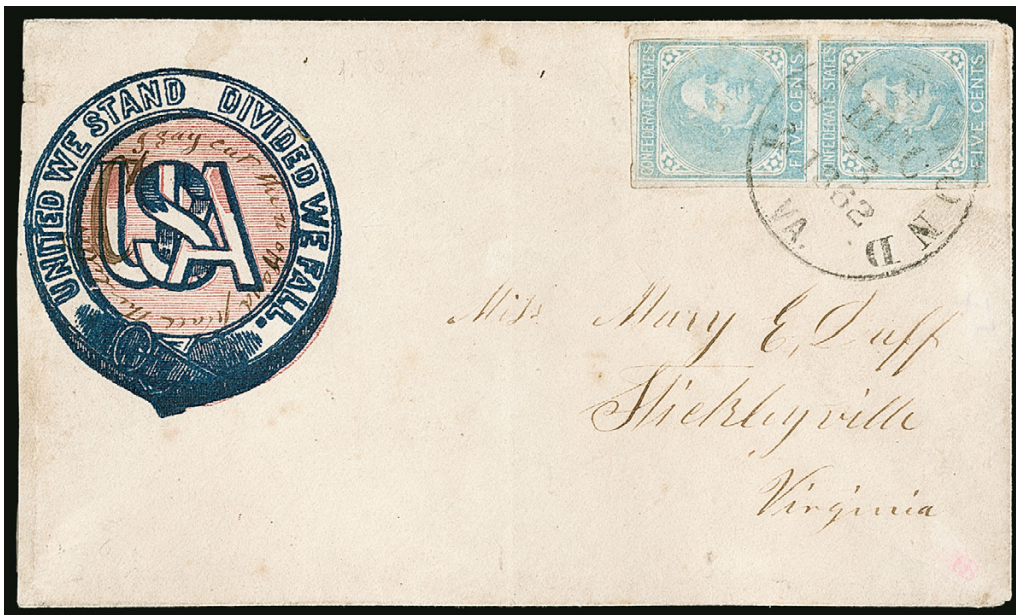 UNITED WE STAND DIVIDED WE FALL.
USA
I say cut them off and
CONFEDERATE STATES
FIVE CENTS
CONFEDERATE STATES
FIVE CENTS
DEC
23
1862
VA.
Miss Mary E. Duff
Stickleyville
Virginia